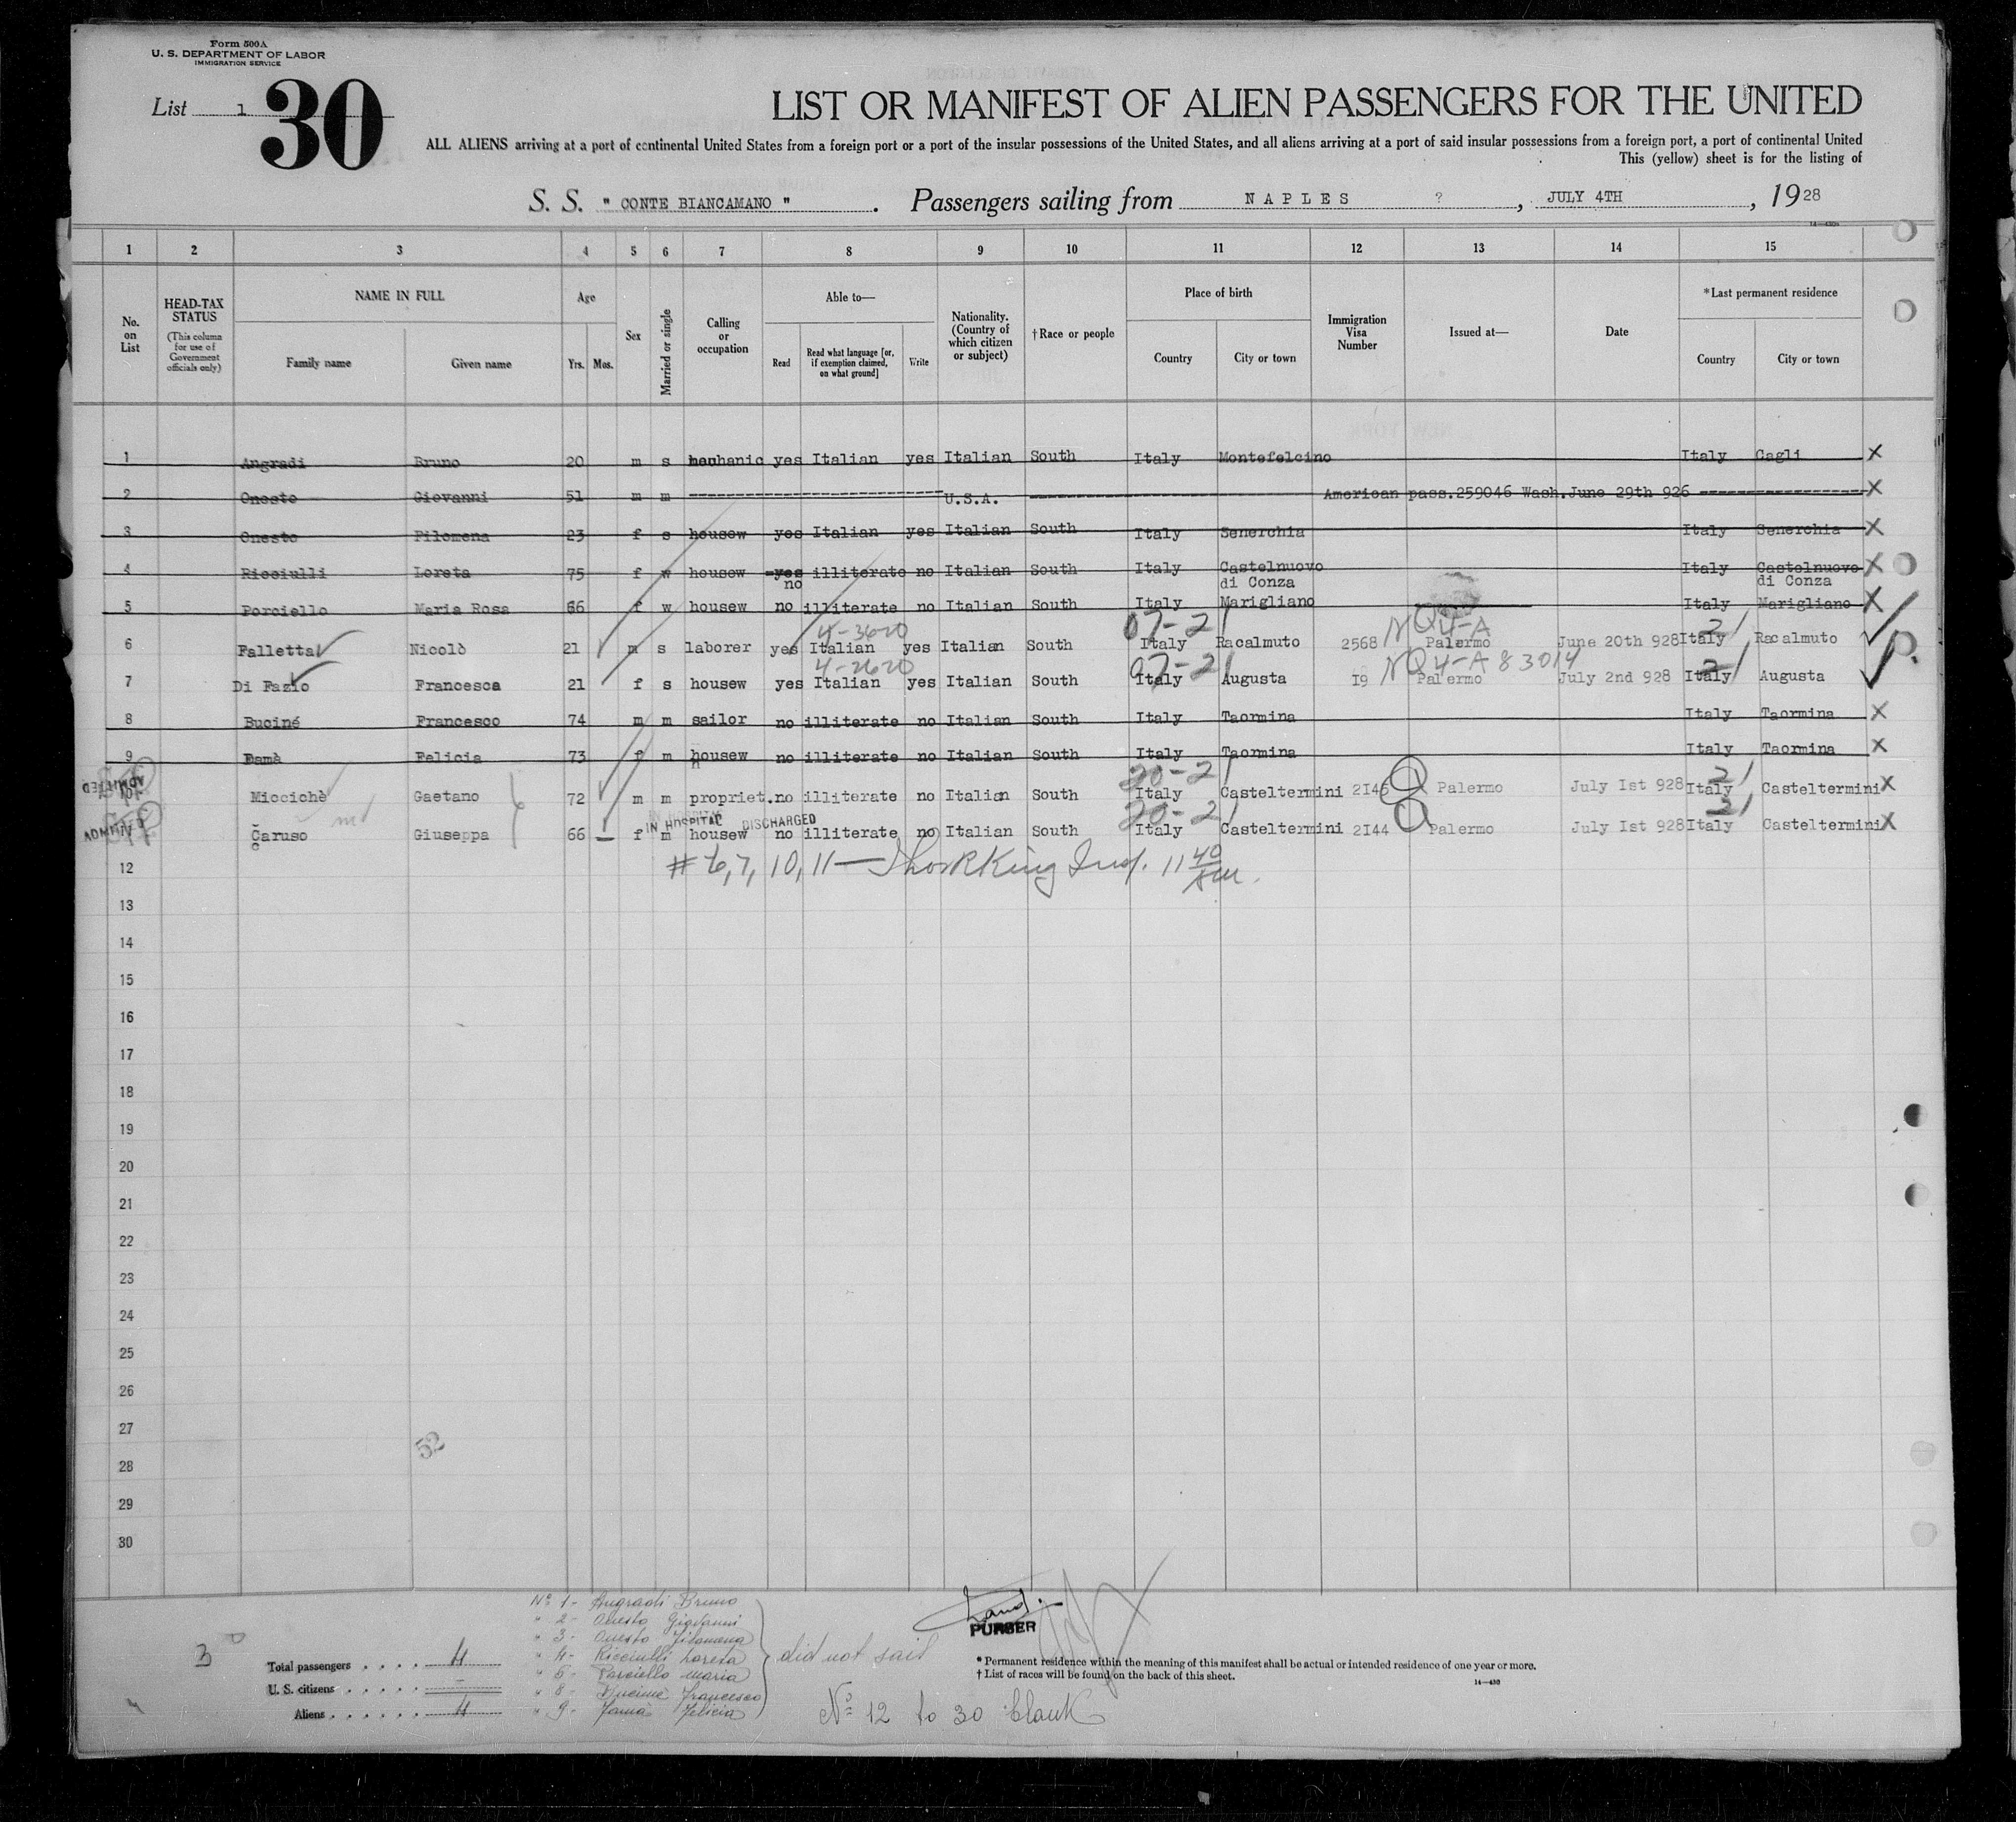 Form 500A
U. S. DEPARTMENT OF LABOR
IMMIGRATION SERVICE
List 1
30
LIST OR MANIFEST OF ALIEN PASSENGERS FOR THE UNITED
ALL ALIENS arriving at a port of continental United States from a foreign port or a port of the insular possessions of the United States, and all aliens arriving at a port of said insular possessions from a foreign port, a port of continental United
This (yellow) sheet is for the listing of
S. S. " CONTE BIANCAMANO " . Passengers sailing from NAPLES ? , JULY 4TH , 1928
14—430a
1 2 3 4 5 6 7 8 9 10 11 12 13 14 15
No. on List
HEAD-TAX STATUS (This column for use of Government officials only)
NAME IN FULL
Family name Given name
Age
Yrs. Mos.
Sex
Married or single
Calling or occupation
Able to—
Read Read what language [or, if exemption claimed, on what ground] Write
Nationality. (Country of which citizen or subject)
†Race or people
Place of birth
Country City or town
Immigration Visa Number
Issued at—
Date
*Last permanent residence
Country City or town
1 Angradi Bruno 20 m s mechanic yes Italian yes Italian South Italy Montefelcino Italy Cagli X
2 Onesto Giovanni 51 m m U.S.A. American pass.259046 Wash.June 29th 926 X
3 Onesto Filomena 23 f s housew yes Italian yes Italian South Italy Senerchia Italy Senerchia X
4 Ricciulli Loreta 75 f w housew yes no illiterate no Italian South Italy Castelnuovo di Conza Italy Castelnuovo di Conza X
5 Porciello Maria Rosa 66 f w housew no illiterate no Italian South Italy Marigliano Italy Marigliano X
4-3620 07-21 NQ 4-A 21
6 Falletta Nicolò 21 m s laborer yes Italian yes Italian South Italy Racalmuto 2568 Palermo June 20th 928 Italy Racalmuto
4-2620 07-21 NQ 4-A 83014 21
7 Di Fazio Francesca 21 f s housew yes Italian yes Italian South Italy Augusta I9 Palermo July 2nd 928 Italy Augusta
8 Buciné Francesco 74 m m sailor no illiterate no Italian South Italy Taormina Italy Taormina X
9 Famà Felicia 73 f m housew no illiterate no Italian South Italy Taormina Italy Taormina X
ADMITTED 20-21 21
Miccichè Gaetano 72 m m propriet. no illiterate no Italian South Italy Casteltermini 2I45 Palermo July Ist 928 Italy Casteltermini X
IN HOSPITAL DISCHARGED
ADMITTED 20-21 21
Caruso Giuseppa 66 f m housew no illiterate no Italian South Italy Casteltermini 2I44 Palermo July Ist 928 Italy Casteltermini X
12 # 6, 7, 10, 11 — 11 40 AM.
13
14
15
16
17
18
19
20
21
22
23
24
25
26
27
52
28
29
30
Nº 1- Angradi Bruno
" 2- Onesto Giovanni
" 3- Onesto Filomena
" 4- Ricciulli Loreta
" 5- Porciello Maria
" 8- Buciné Francesco
" 9- Famà Felicia
did not sail
3
Total passengers . . . . 4
U. S. citizens . . . . . —
Aliens . . . . . . 4
PURSER
* Permanent residence within the meaning of this manifest shall be actual or intended residence of one year or more.
† List of races will be found on the back of this sheet.
14—430
Nº 12 to 30 blank